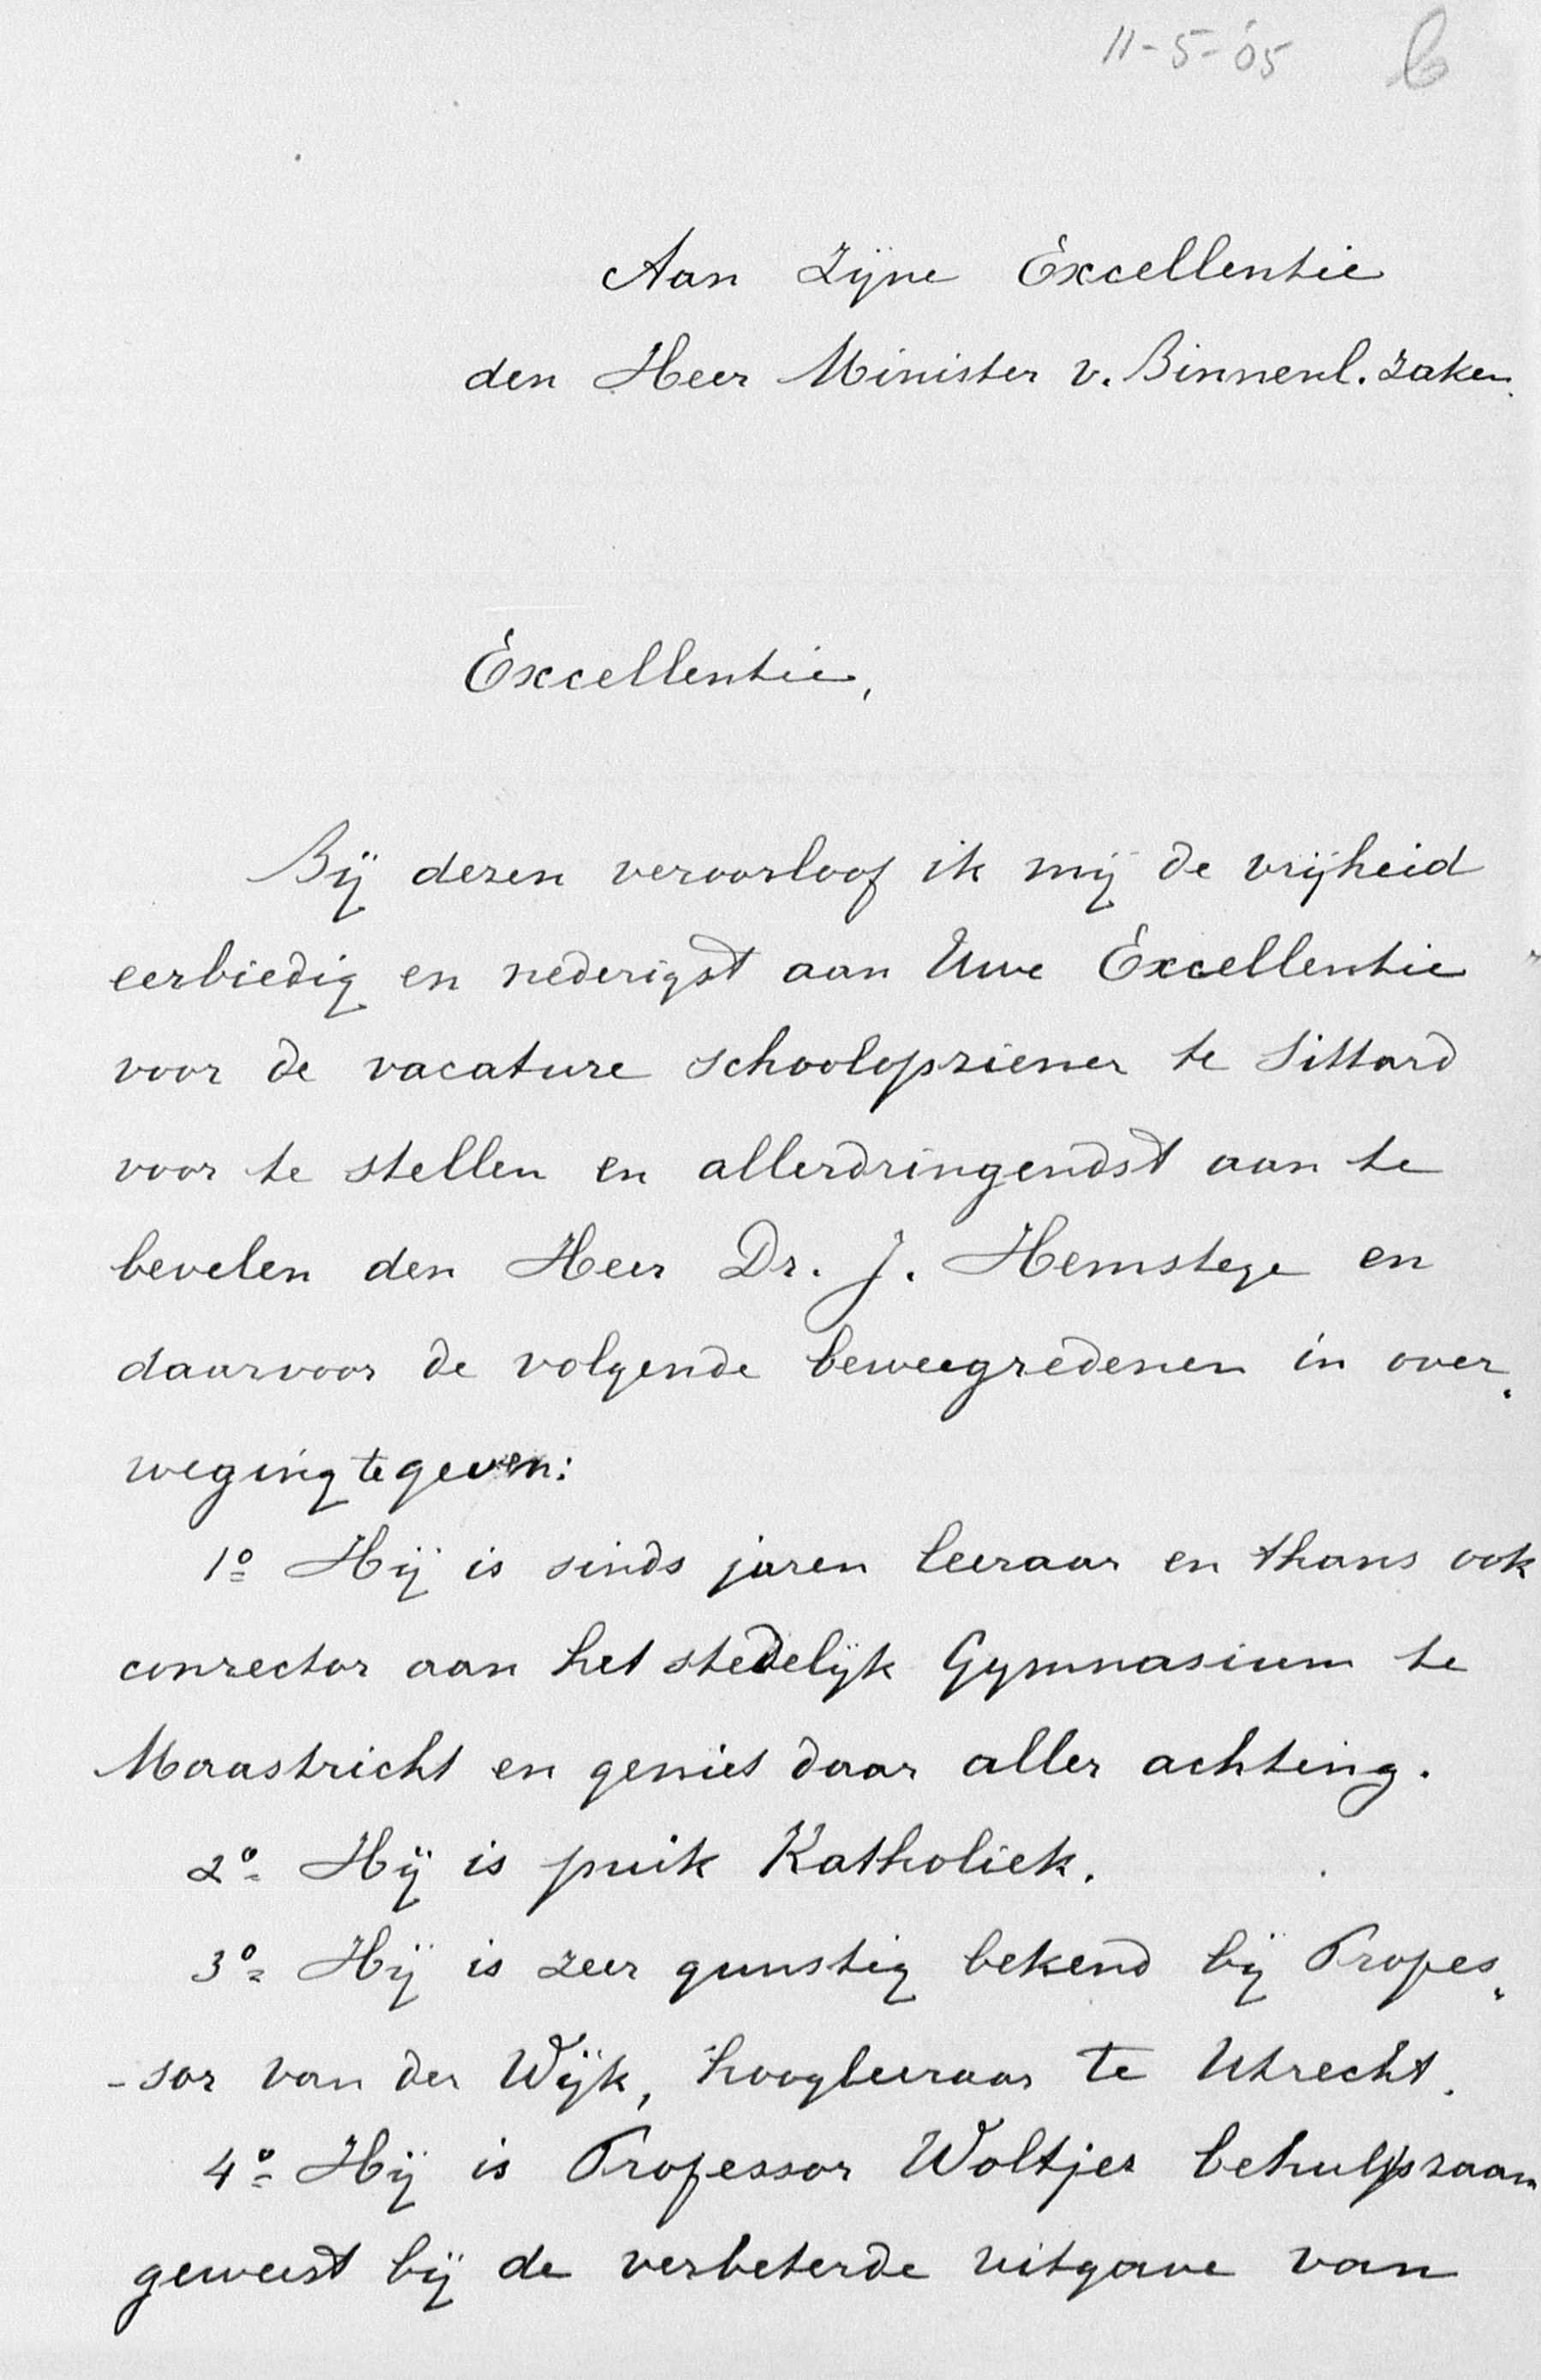 11-5-'05 b
Aan Zijne Excellentie
den Heer Minister v. Binnenl. Zaken.
Excellentie,
Bij dezen veroorloof ik mij de vrijheid
eerbiedig en nederigst aan Uwe Excellentie
voor de vacature schoolopziener te Sittard
voor te stellen en allerdringendst aan te
bevelen den Heer Dr. J. Hemstege en
daarvoor de volgende beweegredenen in over-
weging te geven:
1º Hij is sinds jaren leeraar en thans ook
conrector aan het stedelijk Gymnasium te
Maastricht en geniet daar aller achting.
2º Hij is puik Katholiek.
3º Hij is zeer gunstig bekend bij Profes-
-sor van der Wijk, hoogleeraar te Utrecht.
4º Hij is Professor Woltjer behulpzaam
geweest bij de verbeterde uitgave van